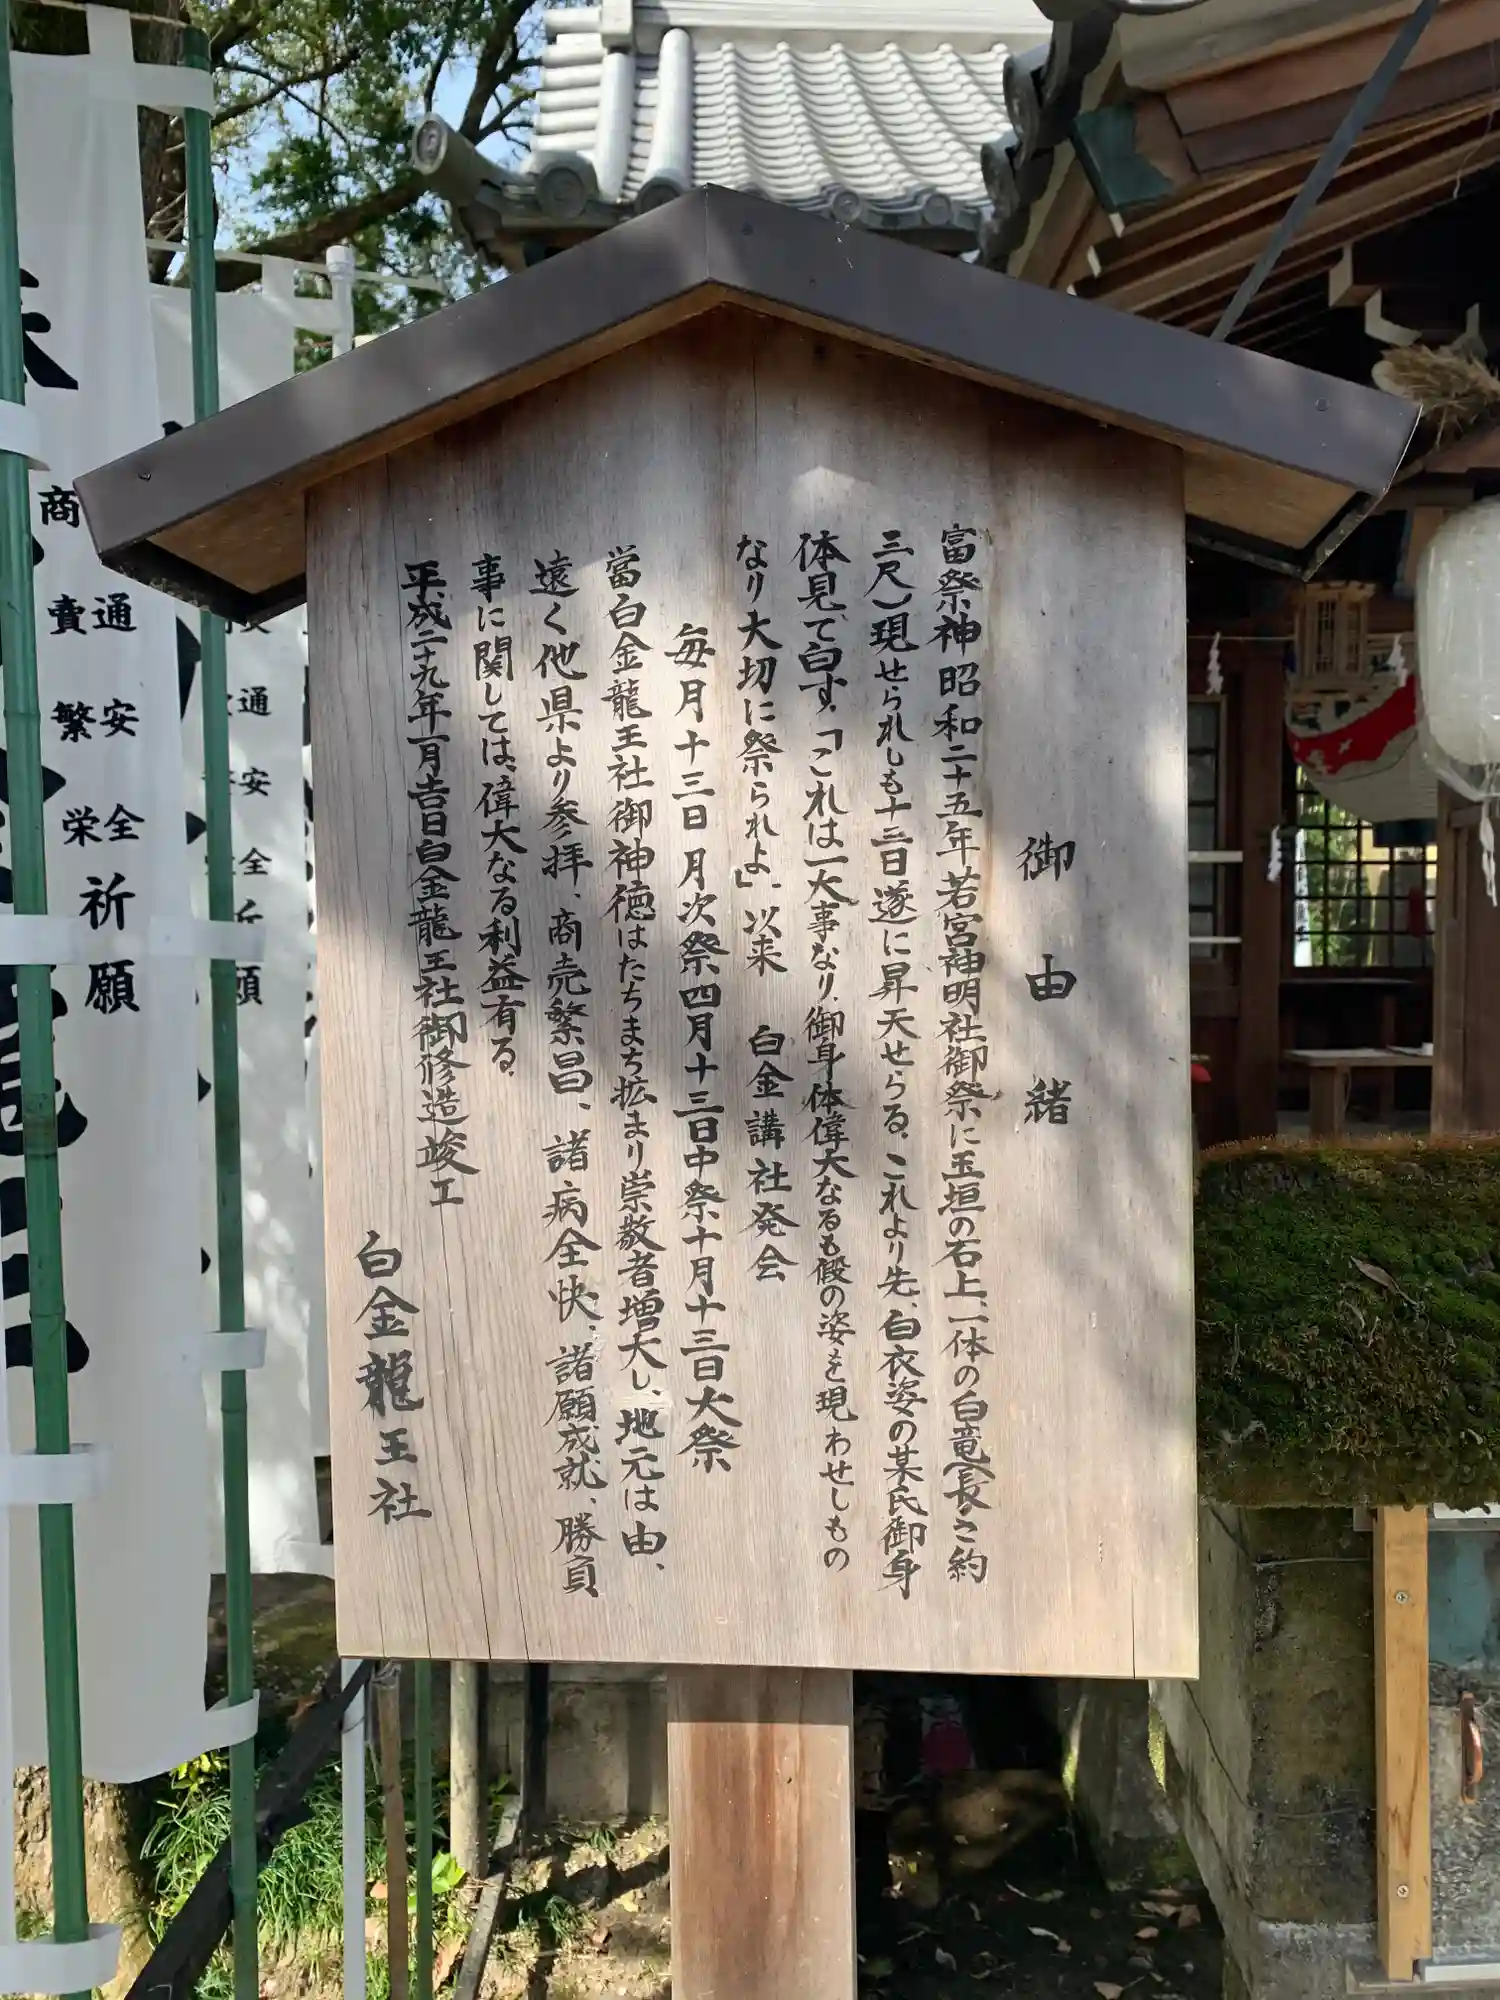 御由緒
富祭神昭和二十五年若宮神明社御祭に玉垣の石上、一体の白竜(長さ約
三尺)現せられしも十三日遂に昇天せらる。これより先、白衣姿の某氏御身
体見で白す、「これは一大事なり、御身体偉大なるも假の姿を現わせしもの
なり大切に祭られよ」、以来 白金講社発会
毎月十三日月次祭四月十三日中祭十月十三日大祭
當白金龍王社御神徳はたちまち拡まり崇敬者増大し、地元は由、
遠く他県より参拝、商売繁昌、諸病全快、諸願成就、勝負
事に関しては、偉大なる利益有る。
平成二十九年一月吉日白金龍王社御修造竣工
白金龍王社
商賣繁栄
通安全
祈願
通安全